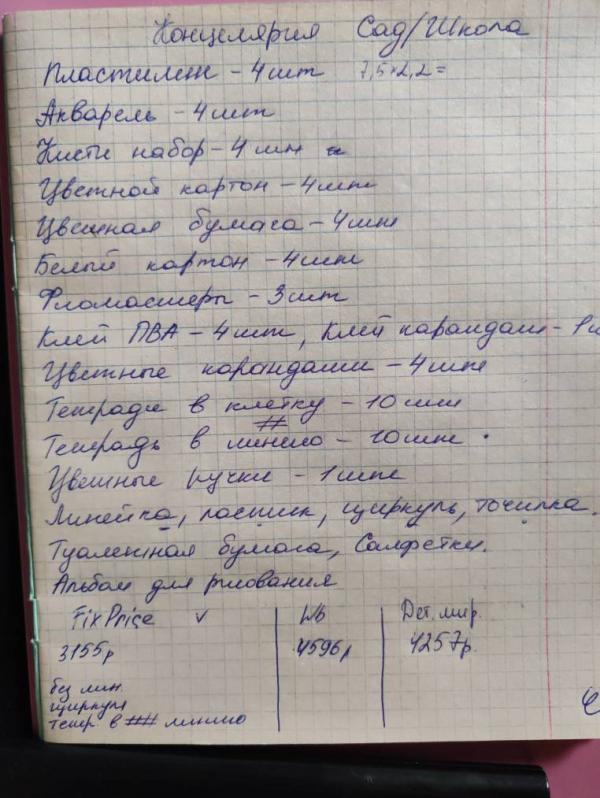 Канцелярия Сад/Школа
Пластилин - 4 шт 7,5×2,2=
Акварель - 4 шт
Кисти набор - 4 шт
Цветной картон - 4 шт
Цветная бумага - 4 шт
Белый картон - 4 шт
Фломастеры - 3 шт
Клей ПВА - 4 шт, Клей карандаш - 1
Цветные карандаши - 4 шт
Тетради в клетку - 10 шт
Тетрадь в линию - 10 шт.
Цветные ручки - 1 шт
Линейка, ластик, циркуль, точилка.
Туалетная бумага, Салфетки.
Альбом для рисования
Fix Price ✓ Wb Дет. мир.
3155р 4596р 4257р.
без лин.
циркуля
тетр в линию